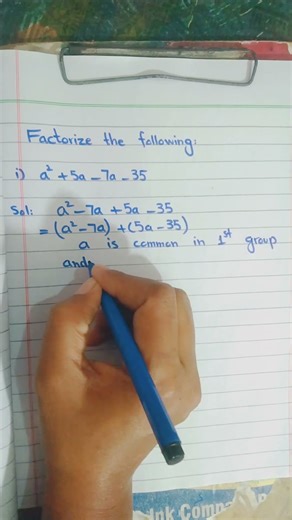 Factorize the following:
i) a² + 5a - 7a - 35
Sol: a² - 7a + 5a - 35
= (a² - 7a) + (5a - 35)
a is common in 1st group
and
Ink Comp